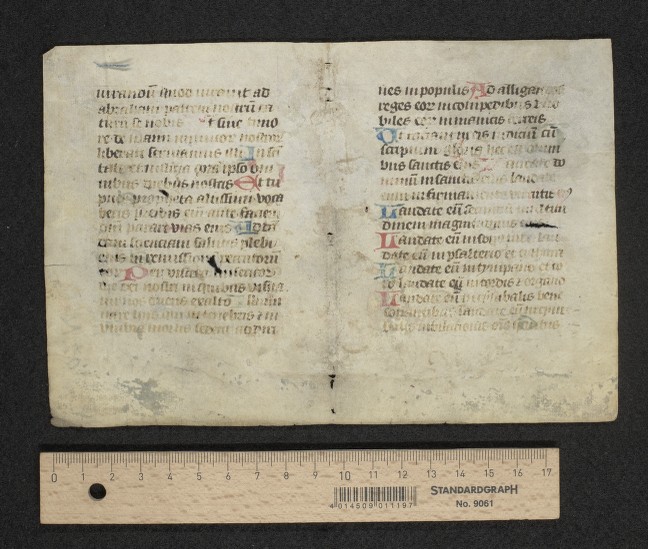 iurandū quod iurauit ad
abraham patrem nostrū da
turū se nobis t sine timo
re de manu inimicor nostror
liberati seruiamus illi In sā
titate et iusticia corā ipso om
nibus diebus nostris Et tu
puer propheta altissimi voca
beris preibis eī ante faciem
dñi parare vias eius Ad dā
dam scienciam salutis plebi
eius in remissionē peccatorū
eor Per viscera misericor
die dei nostri in quibus visita
uit nos oriens ex alto
nare hiis qui in tenebris et in
umbra mortis sedent ad diri
nes in populis Ad alligandos
reges eor in compedibus et no
biles eor in manicis ferreis
Ut faciant in eis iudiciū cō
scriptum gloria hec est omni
bus sanctis eius
Laudate do
minū in sanctis eius laudate
eum in firmamento virtutis
Laudate eū secundum multitu
dinem magnitudinis
Laudate eū in sono tube lau
date eū in psalterio et cithara
Laudate eū in tympano et co
ro laudate eū in cordis et organo
Laudate eū in cymbalis bene
sonantibus laudate eū in cym
balis iubilationis omnis spiritus
0 1 2 3 4 5 6 7 8 9 10 11 12 13 14 15 16 17
4 014509 011197
STANDARDGRAPH
No. 9061